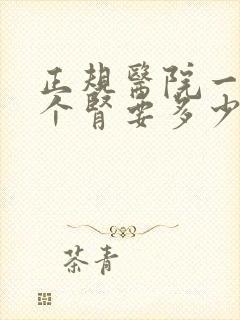 正規醫院一
个腎要多少
茶青